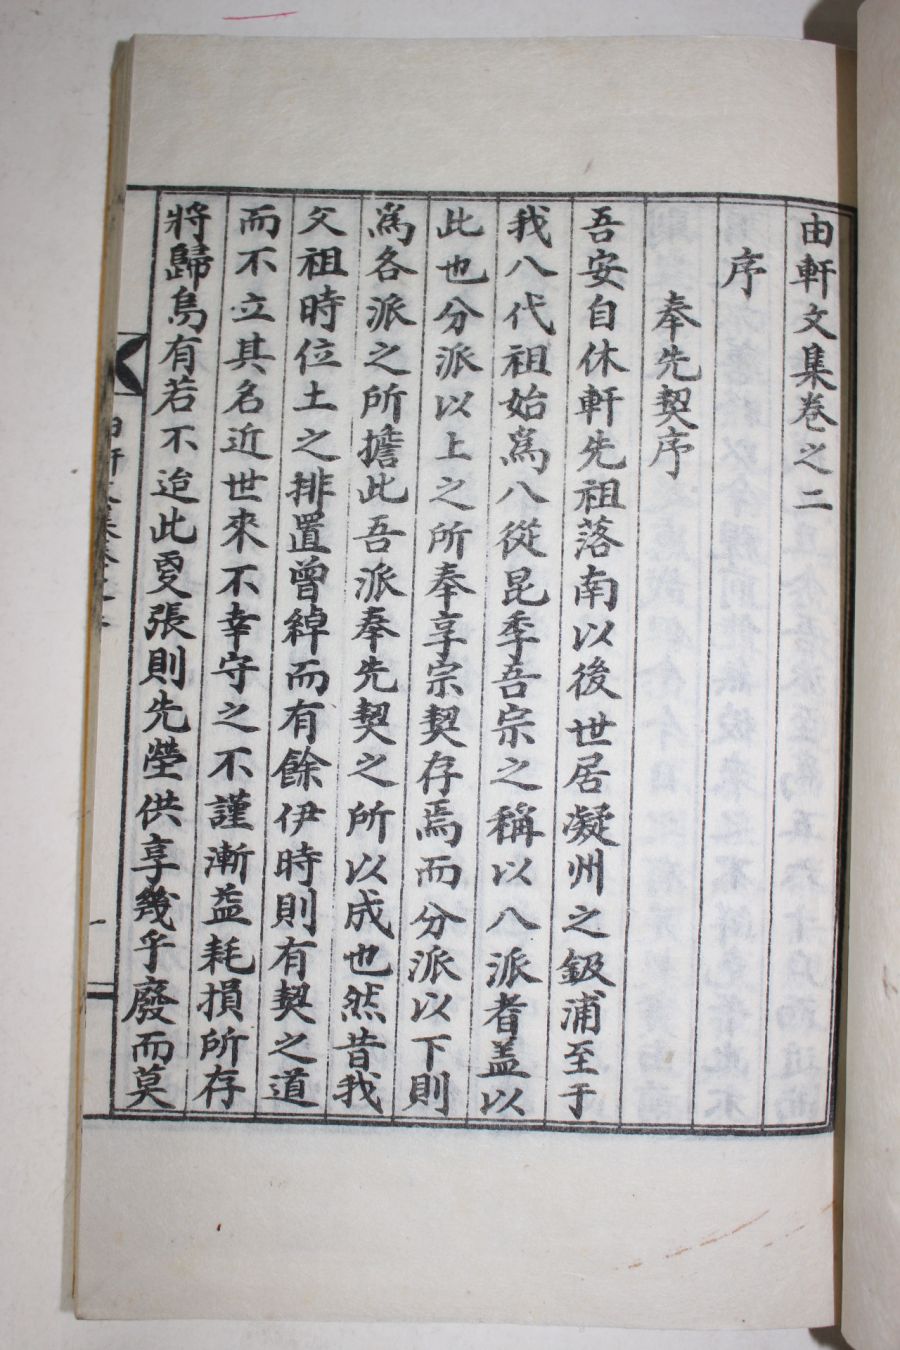 由軒文集卷之二
序
奉先契序
吾安自休軒先祖落南以後世居凝州之鈒浦至于
我八代祖始爲八從昆季吾宗之稱以八派者盖以
此也分派以上之所奉享宗契存焉而分派以下則
爲各派之所擔此吾派奉先契之所以成也然昔我
文祖時位土之排置曾綽而有餘伊時則有契之道
而不立其名近世來不幸守之不謹漸益耗損所存
將歸烏有若不迨此更張則先塋供享幾乎廢而莫
由軒文集卷之二